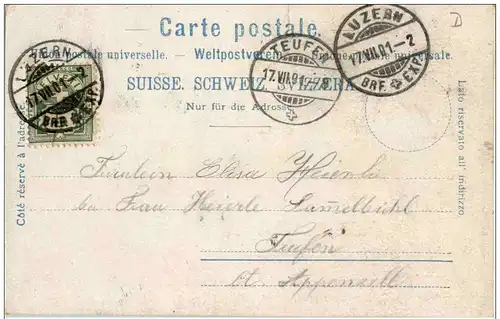 Carte postale.
Union postale universelle. Weltpostverein. Unione postale universale.
SUISSE. SCHWEIZ. SVIZZERA.
Nur für die Adresse.
Côté réservé à l'adresse.
Lato riservato all' indirizzo
LUZERN
17.VII.01-2
BRF. EXP.
TEUFEN
17.VII.01
LUZERN
17.VII.01-2
BRF. EXP.
D
Fräulein Elisa
bei Frau Heierle
Teufen
Ct. Appenzell